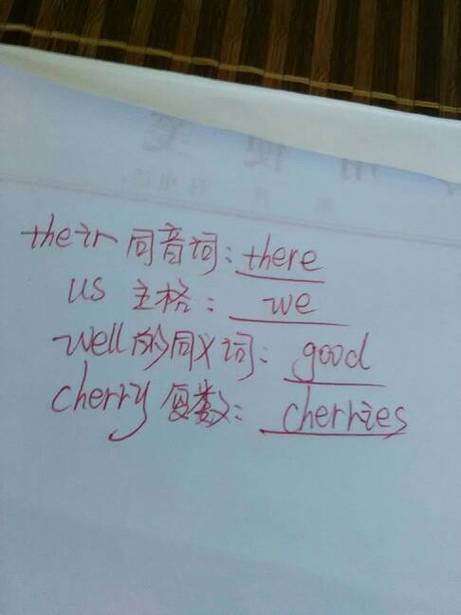 their 同音词: there
us 主格: we
well的同义词: good
cherry 复数: cherries